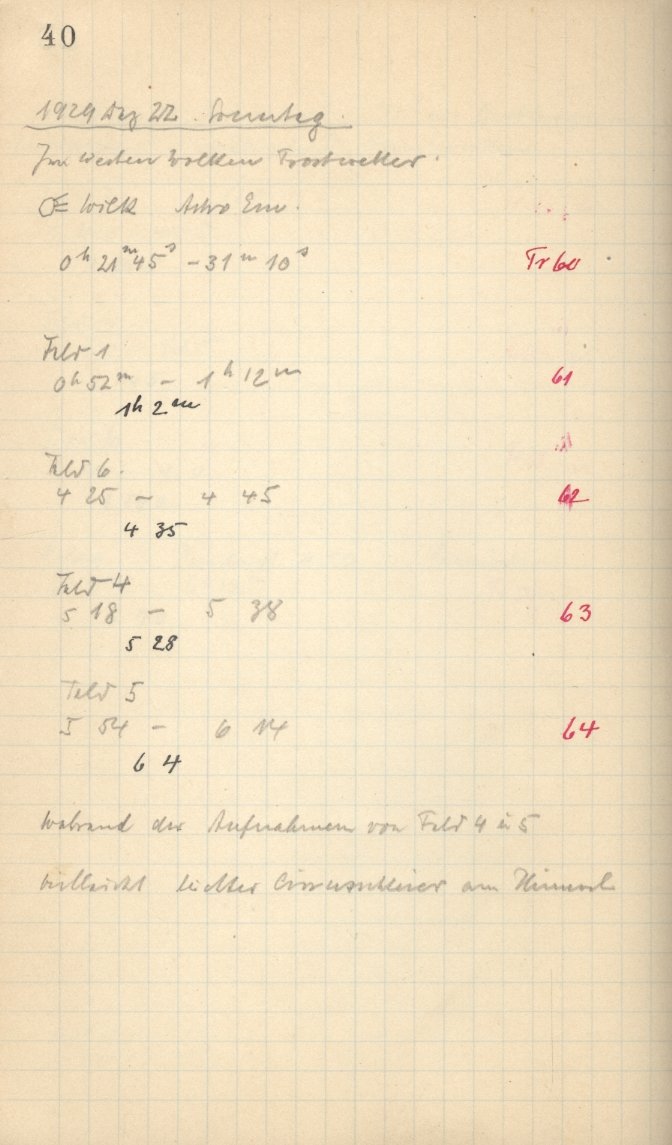 40
1929 Dez 22. Sonntag.
Im Westen Wolken Frostwetter.
Wilk Astro Em.
0h 21m 45s - 31m 10s Tr 60
Feld 1
0h 52m - 1h 12m 61
1h 2m
Feld 6.
4 25 - 4 45 62
4 35
Feld 4
5 18 - 5 38 63
5 28
Feld 5
5 54 - 6 14 64
6 4
während der Aufnahmen von Feld 4 u 5
vielleicht leichter Cirrusschleier am Himmel